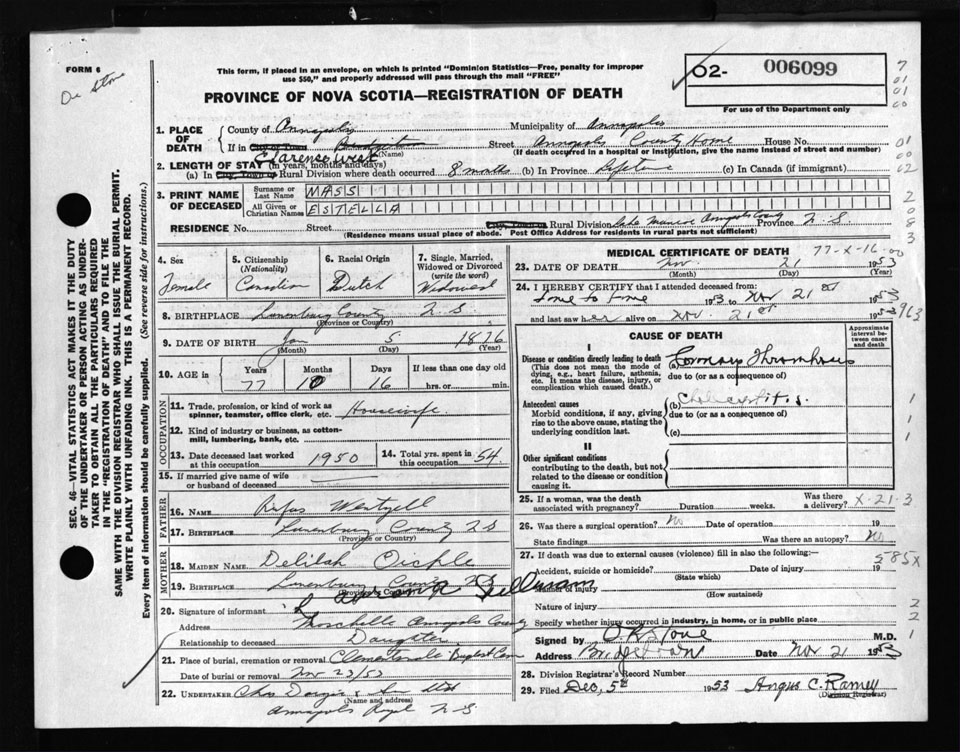 FORM 6
De Stone
This form, if placed in an envelope, on which is printed "Dominion Statistics—Free, penalty for improper
use $50," and properly addressed will pass through the mail "FREE"
PROVINCE OF NOVA SCOTIA—REGISTRATION OF DEATH
O2- 006099
For use of the Department only
7
01
01
00
1. PLACE OF DEATH
County of Annapolis Municipality of Annapolis
If in City or Town Bridgetown Street Annapolis County Home House No.
(Name) (If death occurred in a hospital or institution, give the name instead of street and number)
01
00
02
2. LENGTH OF STAY (in years, months and days)
Clarence West
(a) In City, Town or Rural Division where death occurred 8 months (b) In Province Lifetime (c) In Canada (if immigrant)
3. PRINT NAME OF DECEASED
Surname or Last Name MASS
All Given or Christian Names ESTELLA
RESIDENCE No. Street City, Town or Rural Division Lake Munroe Annapolis County Province N.S.
(Residence means usual place of abode. Post Office Address for residents in rural parts not sufficient)
2
0
8
3
SEC. 46—VITAL STATISTICS ACT MAKES IT THE DUTY
OF THE UNDERTAKER OR PERSON ACTING AS UNDER-
TAKER TO OBTAIN ALL THE PARTICULARS REQUIRED
IN THE "REGISTRATION OF DEATH" AND TO FILE THE
SAME WITH THE DIVISION REGISTRAR WHO SHALL ISSUE THE BURIAL PERMIT.
WRITE PLAINLY WITH UNFADING INK. THIS IS A PERMANENT RECORD.
Every item of information should be carefully supplied. (See reverse side for instructions.)
4. Sex
Female
5. Citizenship
(Nationality)
Canadian
6. Racial Origin
Dutch
7. Single, Married,
Widowed or Divorced
(write the word)
Widowed
8. BIRTHPLACE Lunenburg County N.S.
(Province or Country)
9. DATE OF BIRTH Jan 5 1876
(Month) (Day) (Year)
10. AGE in
Years Months Days If less than one day old
77 10 16 hrs. or min.
OCCUPATION
11. Trade, profession, or kind of work as
spinner, teamster, office clerk, etc. Housewife.
12. Kind of industry or business, as cotton-
mill, lumbering, bank, etc.
13. Date deceased last worked
at this occupation 1950
14. Total yrs. spent in
this occupation 54
15. If married give name of wife
or husband of deceased
FATHER
16. NAME Rufus
17. BIRTHPLACE Lunenburg County N.S.
(Province or Country)
MOTHER
18. MAIDEN NAME Delilah
19. BIRTHPLACE Lunenburg County N.S.
(Province or Country)
20. Signature of informant
Address Annapolis County
Relationship to deceased Daughter
21. Place of burial, cremation or removal Clementsvale Baptist Cem
Date of burial or removal Nov 23/53
22. UNDERTAKER Chas & Son
(Name and address)
Annapolis Royal N.S.
MEDICAL CERTIFICATE OF DEATH 77-X-16
23. DATE OF DEATH Nov. 21 1953
(Month) (Day) (Year)
24. I HEREBY CERTIFY that I attended deceased from:
Time to time 1953 to Nov 21st 1953
and last saw her alive on Nov. 21st 1953
963
CAUSE OF DEATH
Approximate
interval be-
tween onset
and death
I
Disease or condition directly leading to death
(This does not mean the mode of
dying, e.g., heart failure, asthenia,
etc. It means the disease, injury, or
complication which caused death.)
(a) Coronary Thrombosis
due to (or as a consequence of)
Antecedent causes
Morbid conditions, if any, giving
rise to the above cause, stating the
underlying condition last.
(b) Cholecystitis.
due to (or as a consequence of)
(c)
1
1
1
II
Other significant conditions
contributing to the death, but not
related to the disease or condition
causing it.
25. If a woman, was the death
associated with pregnancy? Duration weeks. Was there
a delivery?
X-21-3
26. Was there a surgical operation? No Date of operation 19
State findings Was there an autopsy? No
27. If death was due to external causes (violence) fill in also the following:—
585X
Accident, suicide or homicide? Date of injury 19
(State which)
Manner of injury
(How sustained)
Nature of injury
Specify whether injury occurred in industry, in home, or in public place
2
2
1
Signed by M.D.
Address Bridgetown Date Nov 21 1953
28. Division Registrar's Record Number
29. Filed Dec, 5th 1953 Angus C. Ramey
(Division Registrar)